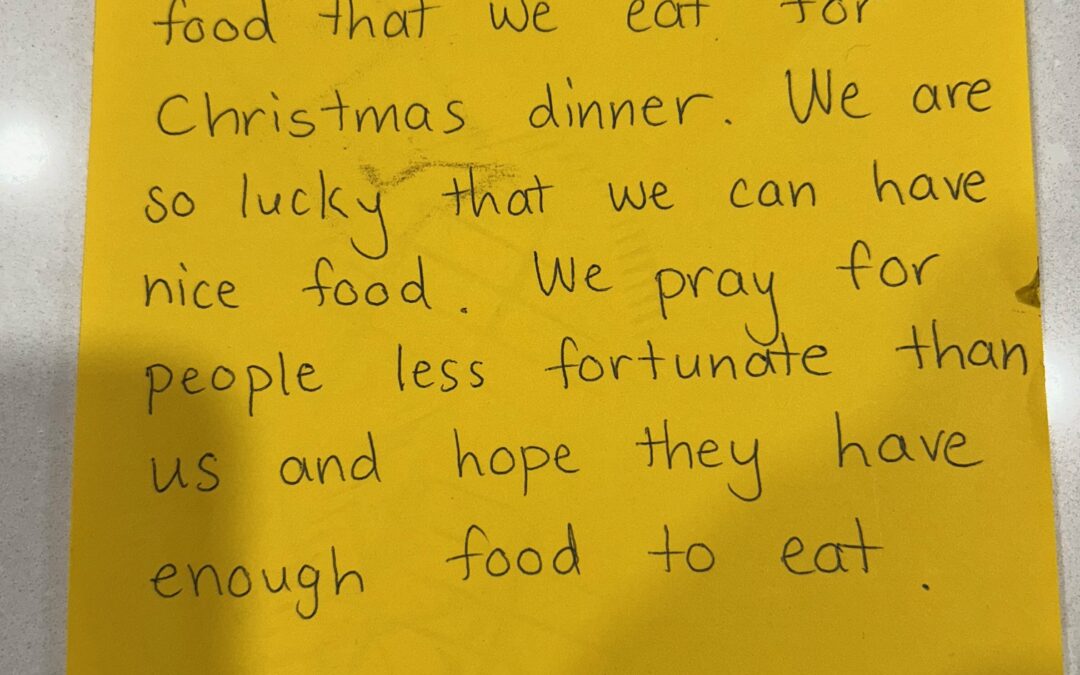 food that we eat for
Christmas dinner. We are
so lucky that we can have
nice food. We pray for
people less fortunate than
us and hope they have
enough food to eat.